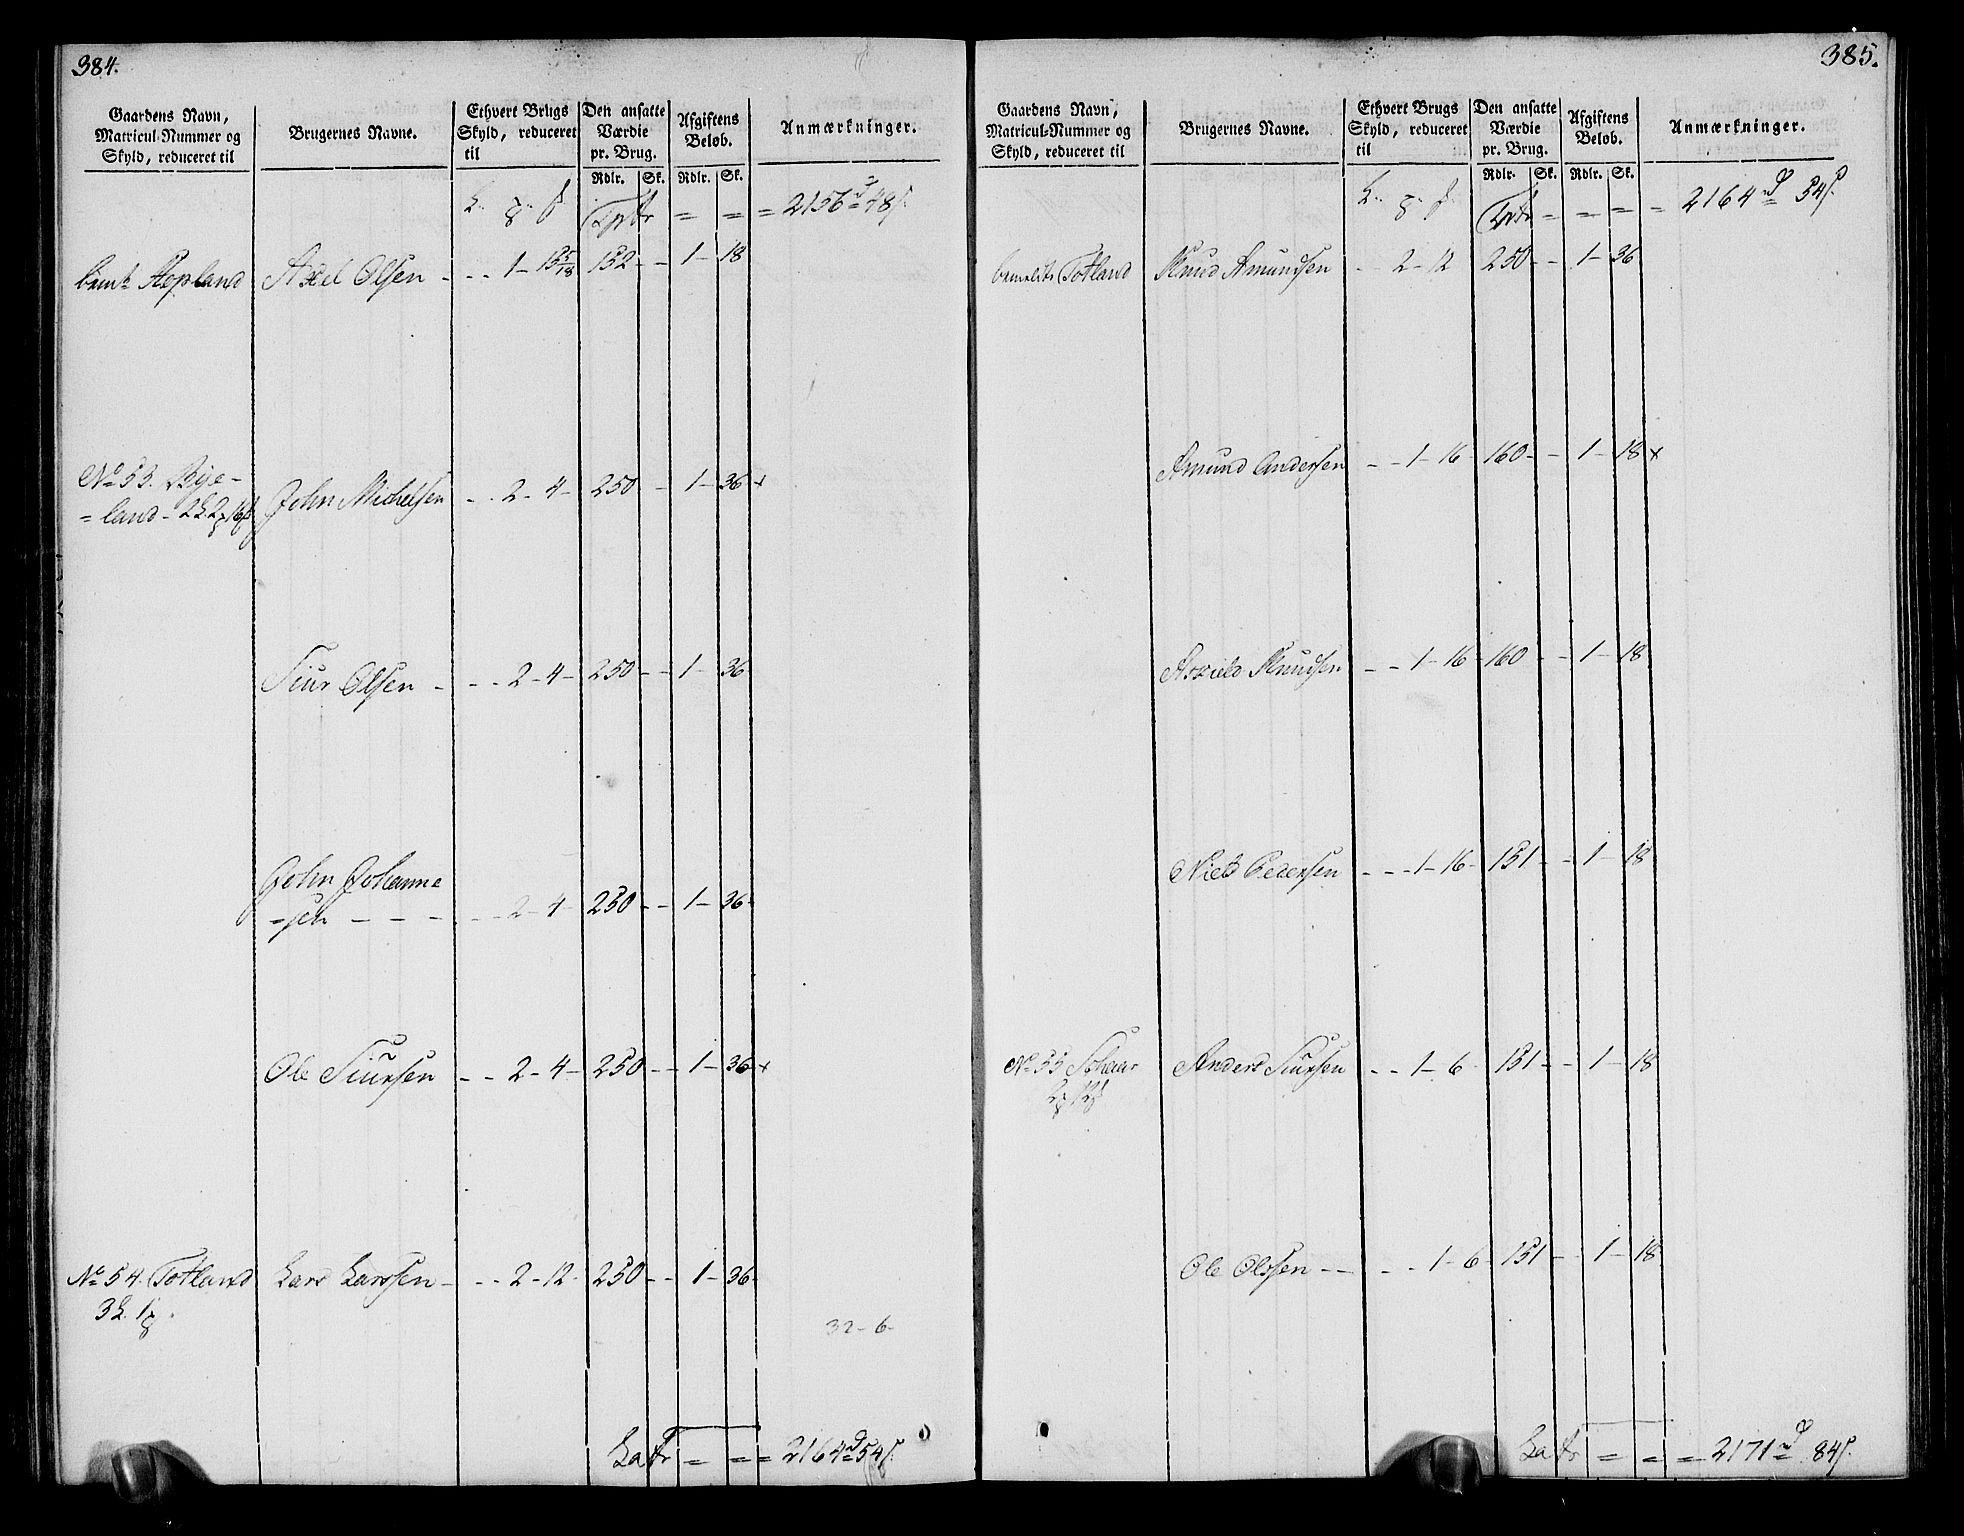 384.
Gaardens Navn, Matricul-Nummer og Skyld, reduceret til
Brugernes Navne.
Ethvert Brugs Skyld, reduceret til
Den ansatte Værdie pr. Brug.
Afgiftens Beløb.
Anmærkninger.
Rdlr. Sk. Rdlr. Sk.
Trptr = = = 2156 d 48 s.
Axel Olsen - - - 1 - 15 5/18 152 - - 1 - 18
No 53. Bye-
= land - John Michelsen - - 2 - 4 - 250 - 1 - 36 x
Siur Olsen - - - 2 - 4 - 250 - - 1 - 36
John Johanne
= sen - - - - - 2 - 4 - 250 - - 1 - 36
Ole Siursen - - 2 - 4 - 250 - - 1 - 36 x
No 54. Totland Lars Larssen - - - 2 - 12 - 250 - - 1 - 36
32 - 6 -
Latr = = = 2164 d 54 s.
385.
Gaardens Navn, Matricul-Nummer og Skyld, reduceret til
Brugernes Navne.
Ethvert Brugs Skyld, reduceret til
Den ansatte Værdie pr. Brug.
Afgiftens Beløb.
Anmærkninger.
Rdlr. Sk. Rdlr. Sk.
Trptr = = = = 2164 d 54 s.
bemelte Totland Knud Amundsen - - 2 - 12 250 - - 1 - 36
Amund Andersen - - 1 - 16 - 160 - - 1 - 18 x
Knudsen - - 1 - 16 - 160 - - 1 - 18
Niels Pedersen - - - 1 - 16 - 151 - - 1 - 18
No 55 Anders Siursen - - 1 - 6 - 151 - - 1 - 18
Ole Olssen - - - - - 1 - 6 - 151 - - 1 - 18
Latr = = = 2171 d 84 s.